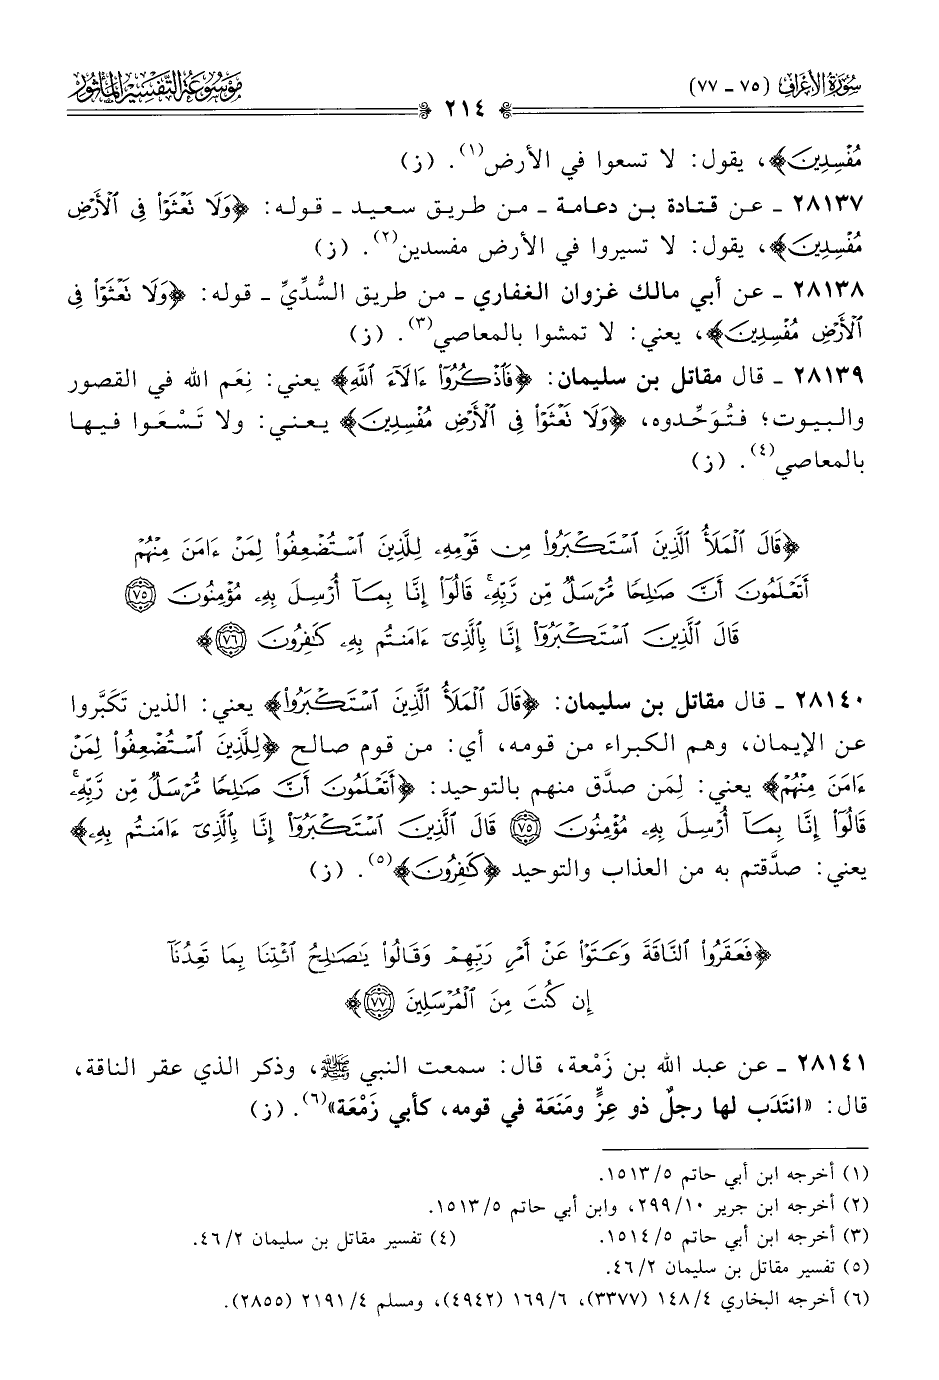 سُورَةُ الأَعْرَافِ (٧٥ - ٧٧)
٢١٤
مَوْسُوعَةُ التَّفْسِيرِ المَأْثُور
مُفْسِدِينَ﴾، يقول: لا تسعوا في الأرض(١). (ز)
٢٨١٣٧ - عن قتادة بن دعامة - من طريق سعيد - قوله: ﴿وَلَا تَعْثَوْا۟ فِى ٱلْأَرْضِ
مُفْسِدِينَ﴾، يقول: لا تسيروا في الأرض مفسدين(٢). (ز)
٢٨١٣٨ - عن أبي مالك غزوان الغفاري - من طريق السُّدِّيِّ - قوله: ﴿وَلَا تَعْثَوْا۟ فِى
ٱلْأَرْضِ مُفْسِدِينَ﴾، يعني: لا تمشوا بالمعاصي(٣). (ز)
٢٨١٣٩ - قال مقاتل بن سليمان: ﴿فَٱذْكُرُوٓا۟ ءَالَآءَ ٱللَّهِ﴾ يعني: نِعَم الله في القصور
والبيوت؛ فتُوَحِّدوه، ﴿وَلَا تَعْثَوْا۟ فِى ٱلْأَرْضِ مُفْسِدِينَ﴾ يعني: ولا تَسْعَوا فيها
بالمعاصي(٤). (ز)
﴿قَالَ ٱلْمَلَأُ ٱلَّذِينَ ٱسْتَكْبَرُوا۟ مِن قَوْمِهِۦ لِلَّذِينَ ٱسْتُضْعِفُوا۟ لِمَنْ ءَامَنَ مِنْهُمْ
أَتَعْلَمُونَ أَنَّ صَٰلِحًا مُّرْسَلٌ مِّن رَّبِّهِۦ ۚ قَالُوٓا۟ إِنَّا بِمَآ أُرْسِلَ بِهِۦ مُؤْمِنُونَ ٧٥
قَالَ ٱلَّذِينَ ٱسْتَكْبَرُوٓا۟ إِنَّا بِٱلَّذِىٓ ءَامَنتُم بِهِۦ كَٰفِرُونَ ٧٦﴾
٢٨١٤٠ - قال مقاتل بن سليمان: ﴿قَالَ ٱلْمَلَأُ ٱلَّذِينَ ٱسْتَكْبَرُوا۟﴾ يعني: الذين تَكَبَّروا
عن الإيمان، وهم الكبراء من قومه، أي: من قوم صالح ﴿لِلَّذِينَ ٱسْتُضْعِفُوا۟ لِمَنْ
ءَامَنَ مِنْهُمْ﴾ يعني: لِمَن صدَّق منهم بالتوحيد: ﴿أَتَعْلَمُونَ أَنَّ صَٰلِحًا مُّرْسَلٌ مِّن رَّبِّهِۦ ۚ
قَالُوٓا۟ إِنَّا بِمَآ أُرْسِلَ بِهِۦ مُؤْمِنُونَ ٧٥ قَالَ ٱلَّذِينَ ٱسْتَكْبَرُوٓا۟ إِنَّا بِٱلَّذِىٓ ءَامَنتُم بِهِۦ﴾
يعني: صدَّقتم به من العذاب والتوحيد ﴿كَٰفِرُونَ﴾(٥). (ز)
﴿فَعَقَرُوا۟ ٱلنَّاقَةَ وَعَتَوْا۟ عَنْ أَمْرِ رَبِّهِمْ وَقَالُوا۟ يَٰصَٰلِحُ ٱئْتِنَا بِمَا تَعِدُنَآ
إِن كُنتَ مِنَ ٱلْمُرْسَلِينَ ٧٧﴾
٢٨١٤١ - عن عبد الله بن زَمْعة، قال: سمعت النبي ﷺ، وذكر الذي عقر الناقة،
قال: «انتَدَب لها رجلٌ ذو عِزٍّ ومَنَعَة في قومه، كأبي زَمْعَة»(٦). (ز)
(١) أخرجه ابن أبي حاتم ١٥١٣/٥.
(٢) أخرجه ابن جرير ٢٩٩/١٠، وابن أبي حاتم ١٥١٣/٥.
(٣) أخرجه ابن أبي حاتم ١٥١٤/٥. (٤) تفسير مقاتل بن سليمان ٤٦/٢.
(٥) تفسير مقاتل بن سليمان ٤٦/٢.
(٦) أخرجه البخاري ١٤٨/٤ (٣٣٧٧)، ١٦٩/٦ (٤٩٤٢)، ومسلم ٢١٩١/٤ (٢٨٥٥).